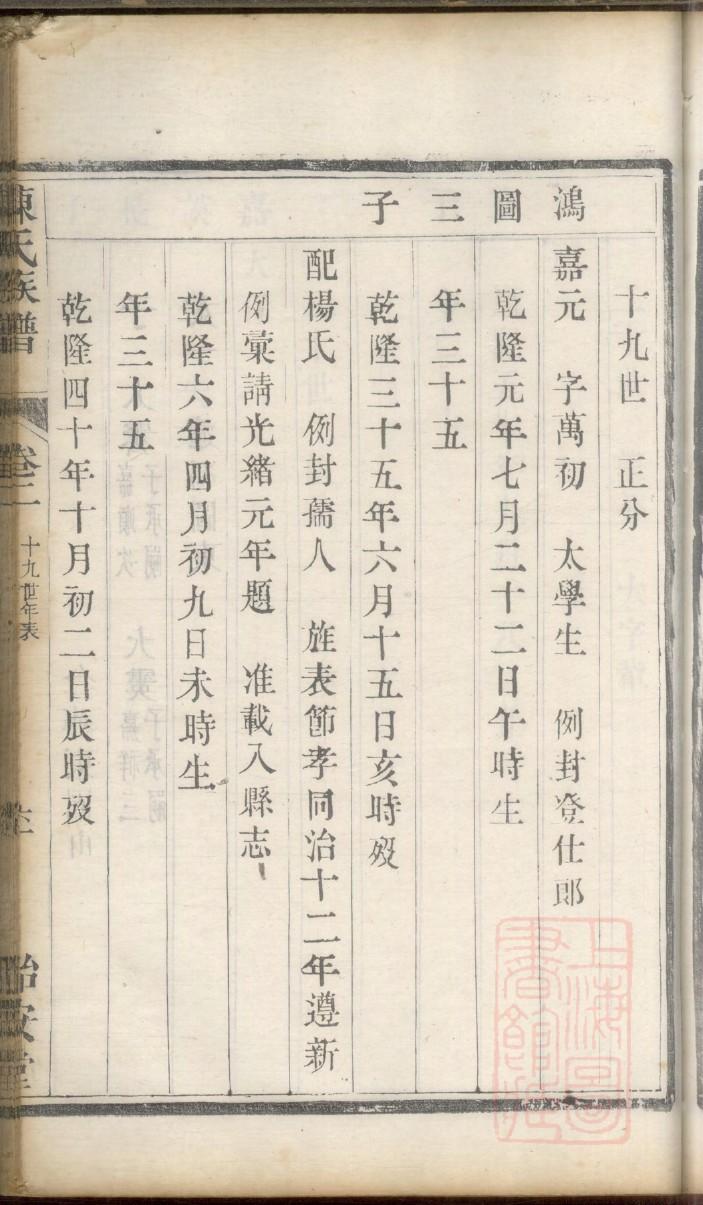 鴻圖三子
十九世　正分
嘉元　字萬初　太學生　例封登仕郎
乾隆元年七月二十二日午時生
年三十五
乾隆三十五年六月十五日亥時歿
配楊氏　例封孺人　旌表節孝同治十二年遵新
例彙請光緒元年題　准載入縣志
乾隆六年四月初九日未時生
年三十五
乾隆四十年十月初二日辰時歿
陳氏族譜
卷二
十九世年表
怡安堂
上海圖書館藏